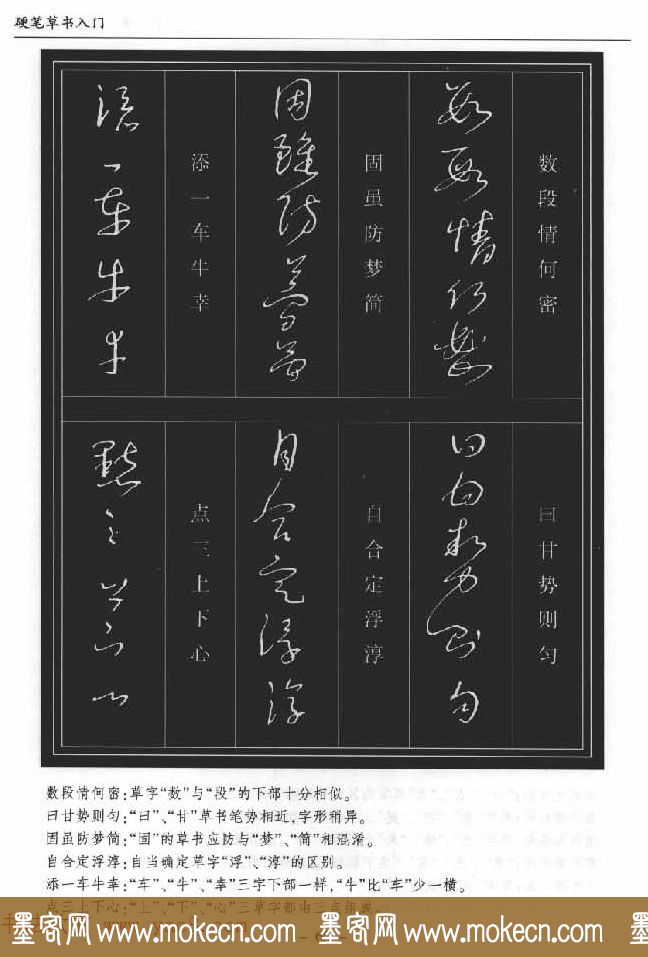 硬笔草书入门
数段情何密
数段情何密
固虽防梦简
固虽防梦简
添一车牛幸
添一车牛幸
曰甘势则匀
曰甘势则匀
自合定浮淳
自合定浮淳
点三上下心
点三上下心
数段情何密:草字“数”与“段”的下部十分相似。
曰甘势则匀:“曰”、“甘”草书笔势相近,字形稍异。
固虽防梦简:“固”的草书应防与“梦”、“简”相混淆。
自合定浮淳:自当确定草字“浮”、“淳”的区别。
添一车牛幸:“车”、“牛”、“幸”三字下部一样,“牛”比“车”少一横。
点三上下心:“上”、“下”、“心”三草字都由三点组成
墨客网 www.mokecn.com 墨客网 www.mokecn.com